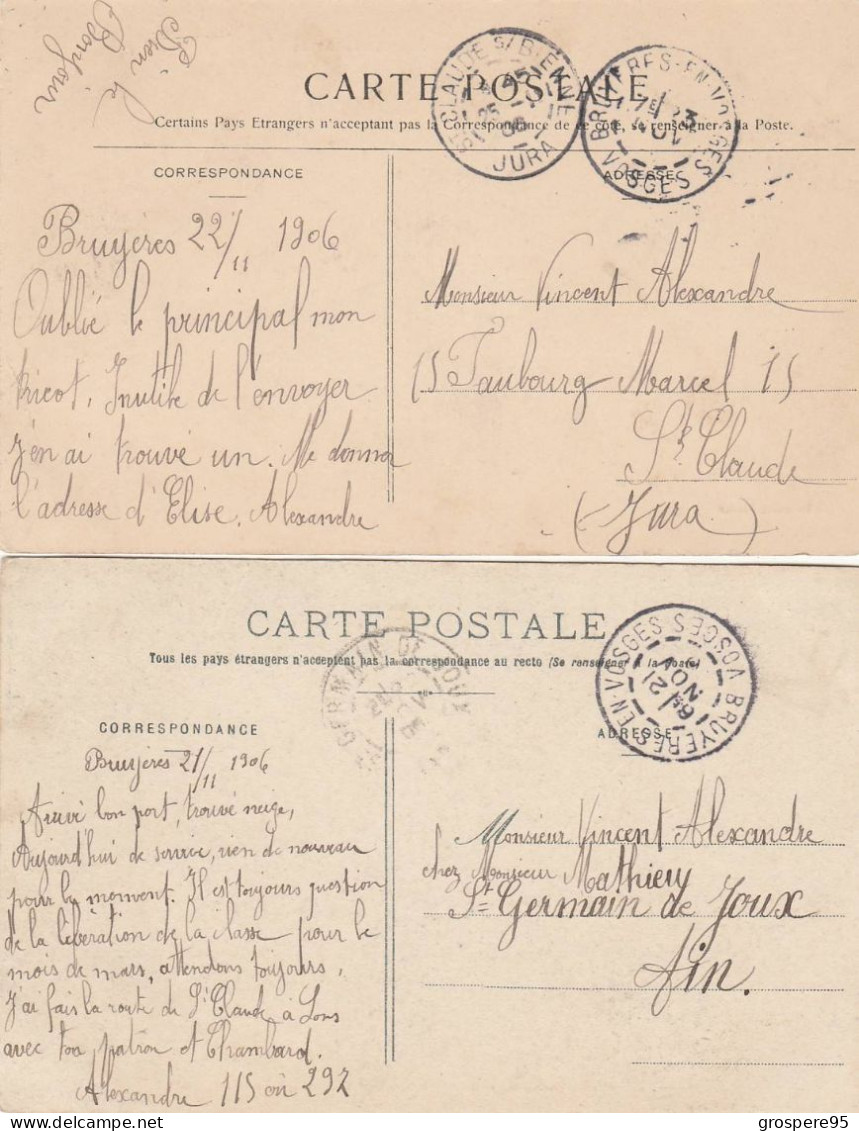 Bien le
Bonjour
CARTE POSTALE
Certains Pays Etrangers n'acceptent pas la Correspondance de ce côté, se renseigner à la Poste.
ST CLAUDE S/ BIENNE
JURA
BRUYERES-EN-VOSGES
VOSGES
CORRESPONDANCE
ADRESSE
Bruyères 22/11 1906
Oublié le principal mon
tricot. Inutile de l'envoyer
j'en ai trouvé un. Me donner
l'adresse d'Elise. Alexandre
Monsieur Vincent Alexandre
15 Faubourg Marcel 15
St Claude
(Jura)
CARTE POSTALE
Tous les pays étrangers n'acceptent pas la correspondance au recto (Se renseigner à la Poste)
ST GERMAIN DE JOUX
BRUYERES-EN-VOSGES VOSGES
6H 21
NOV
CORRESPONDANCE
ADRESSE
Bruyères 21/11 1906
Arrivé bon port, trouvé neige,
Aujourd'hui de service, rien de nouveau
pour le moment. Il est toujours question
de la libération de la classe pour le
mois de mars, attendons toujours,
J'ai fais la route de St Claude à Lons
avec ton patron et Chambard.
Alexandre 115 ou 292
Monsieur Vincent Alexandre
chez Monsieur Mathieu
St Germain de Joux
Ain.
grospere95